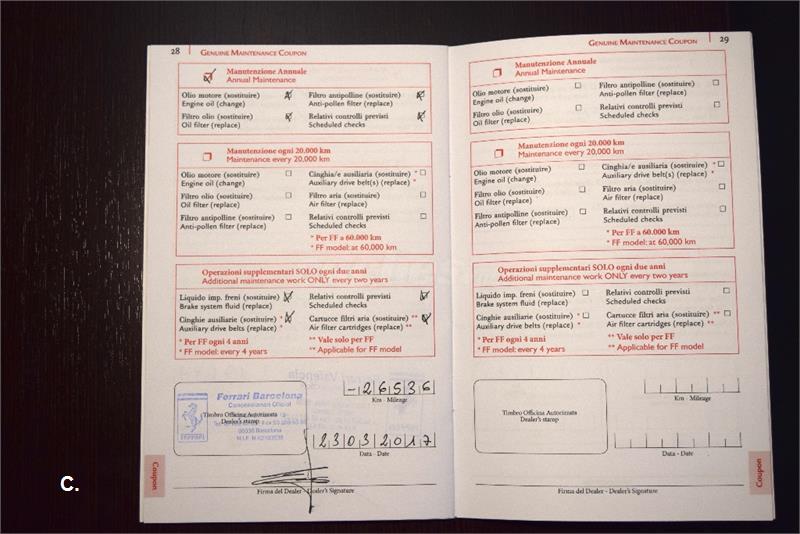 28 GENUINE MAINTENANCE COUPON
Manutenzione Annuale
Annual Maintenance
Olio motore (sostituire)
Engine oil (change)
Filtro antipolline (sostituire)
Anti-pollen filter (replace)
Filtro olio (sostituire)
Oil filter (replace)
Relativi controlli previsti
Scheduled checks
Manutenzione ogni 20.000 km
Maintenance every 20,000 km
Olio motore (sostituire)
Engine oil (change)
Cinghia/e ausiliaria (sostituire) *
Auxiliary drive belt(s) (replace) *
Filtro olio (sostituire)
Oil filter (replace)
Filtro aria (sostituire)
Air filter (replace)
Filtro antipolline (sostituire)
Anti-pollen filter (replace)
Relativi controlli previsti
Scheduled checks
* Per FF a 60.000 km
* FF model: at 60,000 km
Operazioni supplementari SOLO ogni due anni
Additional maintenance work ONLY every two years
Liquido imp. freni (sostituire)
Brake system fluid (replace)
Relativi controlli previsti
Scheduled checks
Cinghie ausiliarie (sostituire) *
Auxiliary drive belts (replace) *
Cartucce filtri aria (sostituire) **
Air filter cartridges (replace) **
* Per FF ogni 4 anni
* FF model: every 4 years
** Vale solo per FF
** Applicable for FF model
Ferrari Barcelona
Concesionario Oficial
Timbro Officina Autorizzata
Dealer's stamp
08038 Barcelona
-26536
Km - Mileage
23032017
Data - Date
Firma del Dealer - Dealer's Signature
Coupon
C.
GENUINE MAINTENANCE COUPON 29
Manutenzione Annuale
Annual Maintenance
Olio motore (sostituire)
Engine oil (change)
Filtro antipolline (sostituire)
Anti-pollen filter (replace)
Filtro olio (sostituire)
Oil filter (replace)
Relativi controlli previsti
Scheduled checks
Manutenzione ogni 20.000 km
Maintenance every 20,000 km
Olio motore (sostituire)
Engine oil (change)
Cinghia/e ausiliaria (sostituire) *
Auxiliary drive belt(s) (replace) *
Filtro olio (sostituire)
Oil filter (replace)
Filtro aria (sostituire)
Air filter (replace)
Filtro antipolline (sostituire)
Anti-pollen filter (replace)
Relativi controlli previsti
Scheduled checks
* Per FF a 60.000 km
* FF model: at 60,000 km
Operazioni supplementari SOLO ogni due anni
Additional maintenance work ONLY every two years
Liquido imp. freni (sostituire)
Brake system fluid (replace)
Relativi controlli previsti
Scheduled checks
Cinghie ausiliarie (sostituire) *
Auxiliary drive belts (replace) *
Cartucce filtri aria (sostituire) **
Air filter cartridges (replace) **
* Per FF ogni 4 anni
* FF model: every 4 years
** Vale solo per FF
** Applicable for FF model
Timbro Officina Autorizzata
Dealer's stamp
Km - Mileage
Data - Date
Firma del Dealer - Dealer's Signature
Coupon